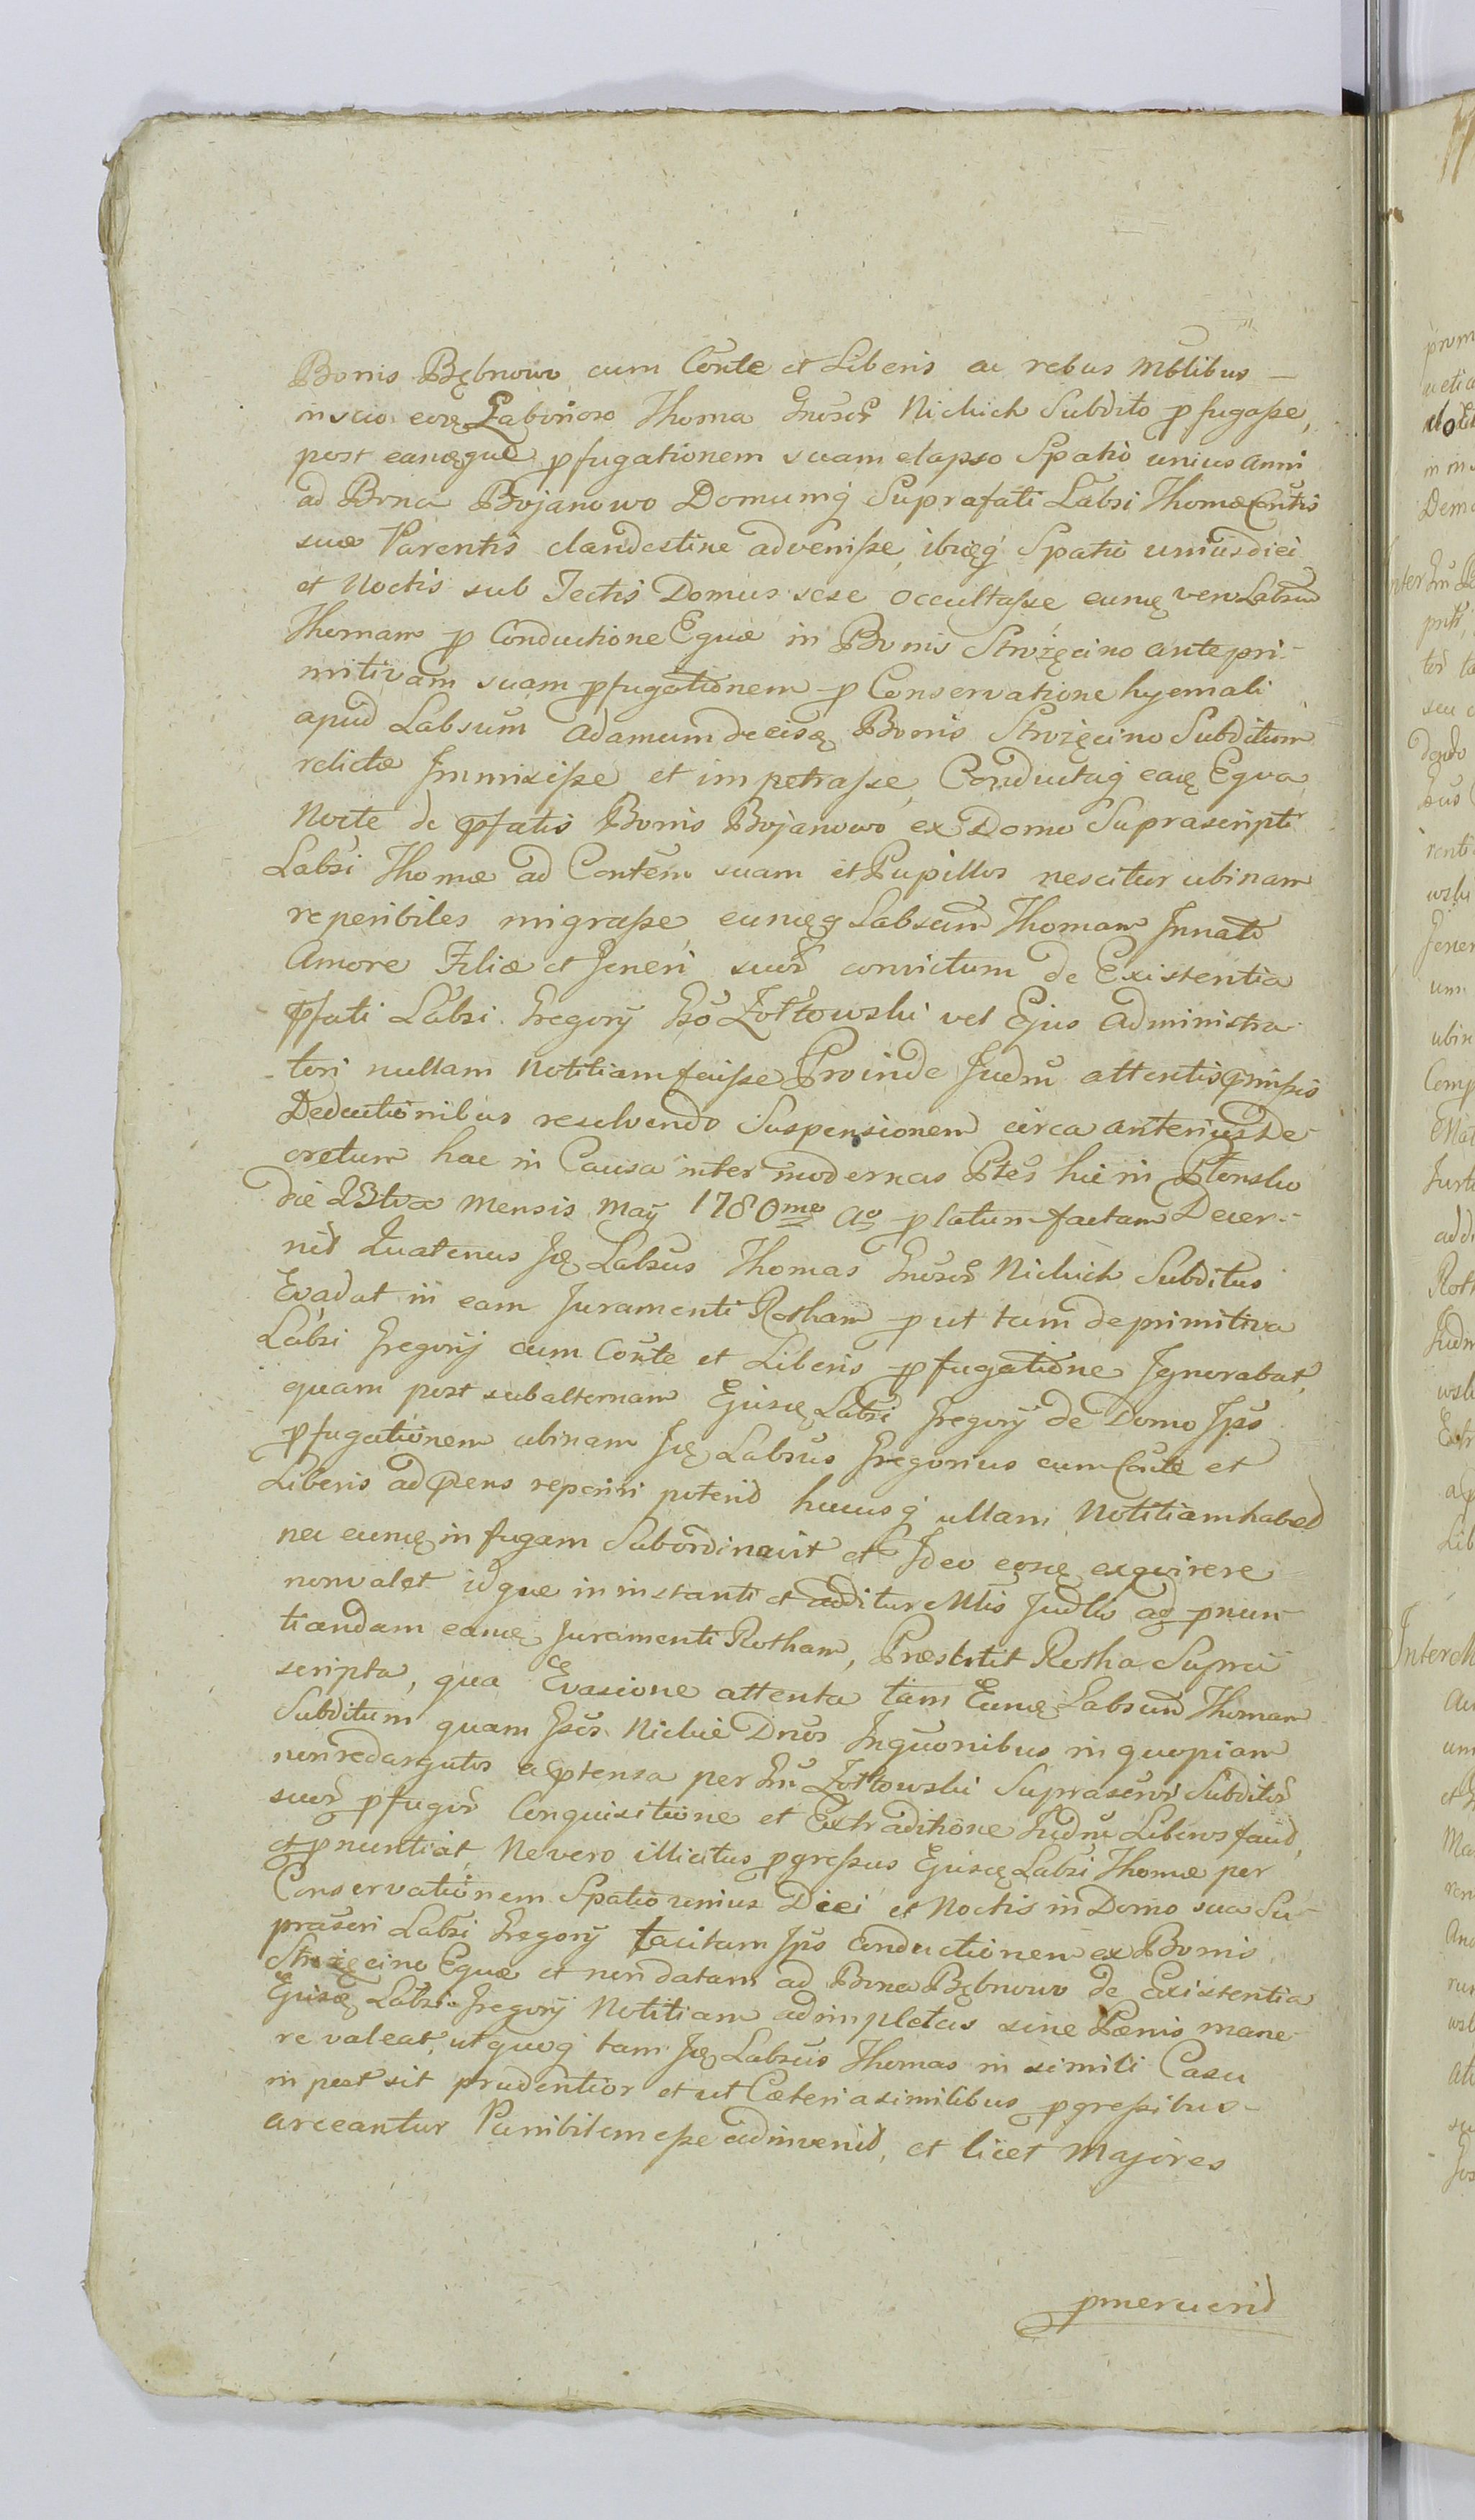 Bonis Bębnowo cum Conte et Liberis ac rebus Mblibus —
inscio eodę Laborioso Thoma Gnosor Nickich Subdito pfugasse,
post eamęque pfugationem suam elapso Spatio unius anni
ad Bona Bojanowo Domumq Suprafati Labsi Thomæ Contis
suæ Parentis clandestine advenisse, ibięq Spatio unius diei
et Noctis sub Tectis Domus sese occultasse eumę vero Labsum
Thomam p Conductione Equæ in Bonis Strożęcino ante pri-
mitivam suam pfugationem p Conservatione hyemali
apud Labsum Adamum de eisdę Bonis Strożęcino Subditum
relictæ Immisisse et impetrasse, Conductaq eaę Equa
Nocte de pfatis Bonis Bojanowo ex Domo Suprascripti
Labsi Thomæ ad Contem suam et Pupillos nescitur ubinam
reperibiles migrasse, eumęq Labsum Thomam Innato
Amore Filiæ et Generi suor convictum de Existentia
pfati Labsi Gregorij Gso Żołtowski vel Ejus Administra-
tori nullam Notitiam fecisse Proinde Judm attentis pmissis
Deductionibus resolvendo Suspensionem circa anterius De-
cretum hac in Causa inter modernas Ptes hic in Płonsko
die 23tia Mensis Maij 1780mo Ao platum factam Decer-
nit Quatenus Ię Labsus Thomas Gnosor Nickich Subditus
Evadat in eam Juramenti Rotham p ut tam de primitiva
Labsi Gregorij cum Conte et Liberis pfugatione Ignorabat,
quam post subalternam Ejusę Labsi Gregorij de Domo Ipso
pfugationem ubinam Ię Labsus Gregorius cum Conte et
Liberis ad pens reperiri poterit hucusq ullam Notitiam habet
nec eumę in fugam Subordinavit et Ideo eosę exquirere
non valet idque in instanti et additur Mtis Judlis ad pnun-
tiandam eamę Juramenti Rotham, Præstitit Rotha Supra
scripta, qua Evasione attenta tam Eumę Labsum Thomam
Subditum quam Gsos Nickie Dnos Inquonibus in quopiam
non redargutos a ptensa per Gm Żołtowski Suprascror Subditor
suor pfugor Conquisitione et Extraditione Judm Liberos facit,
et pnuntiat, Ne vero illicitus pgressus Ejusę Labsi Thomæ per
Conservationem Spatio unius Diei et Noctis in Domo sua Su-
prascri Labsi Gregorij tacitam Ipso conductionem ex Bonis
Strożęcino Equæ et non datam ad Bona Bębnowo de Existentia
Ejusdę Labsi Gregorij Notitiam adimpletus sine Pænis mane-
re valeat, ut quoq tam Ię Labsus Thomas in simili Casu
in post sit prudentior et ut Cæteri a similibus pgressibus-
arceantur Punibilem esse adinvenit, et licet Majores
pmeruerit